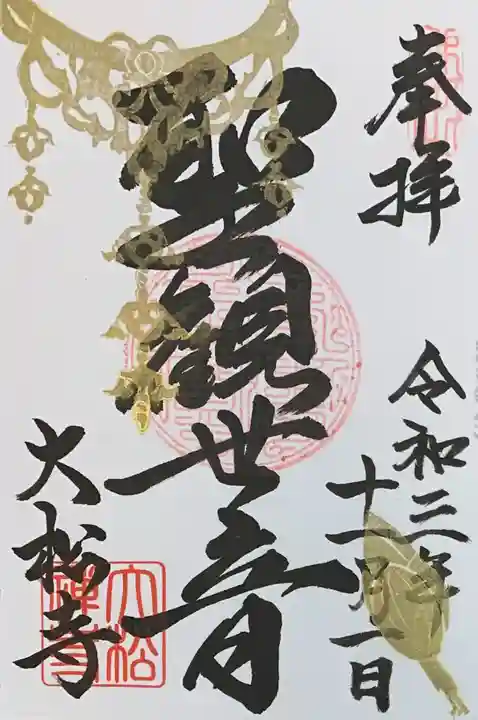 奉拝
令和三年
十一月一日
聖観世音
大松寺